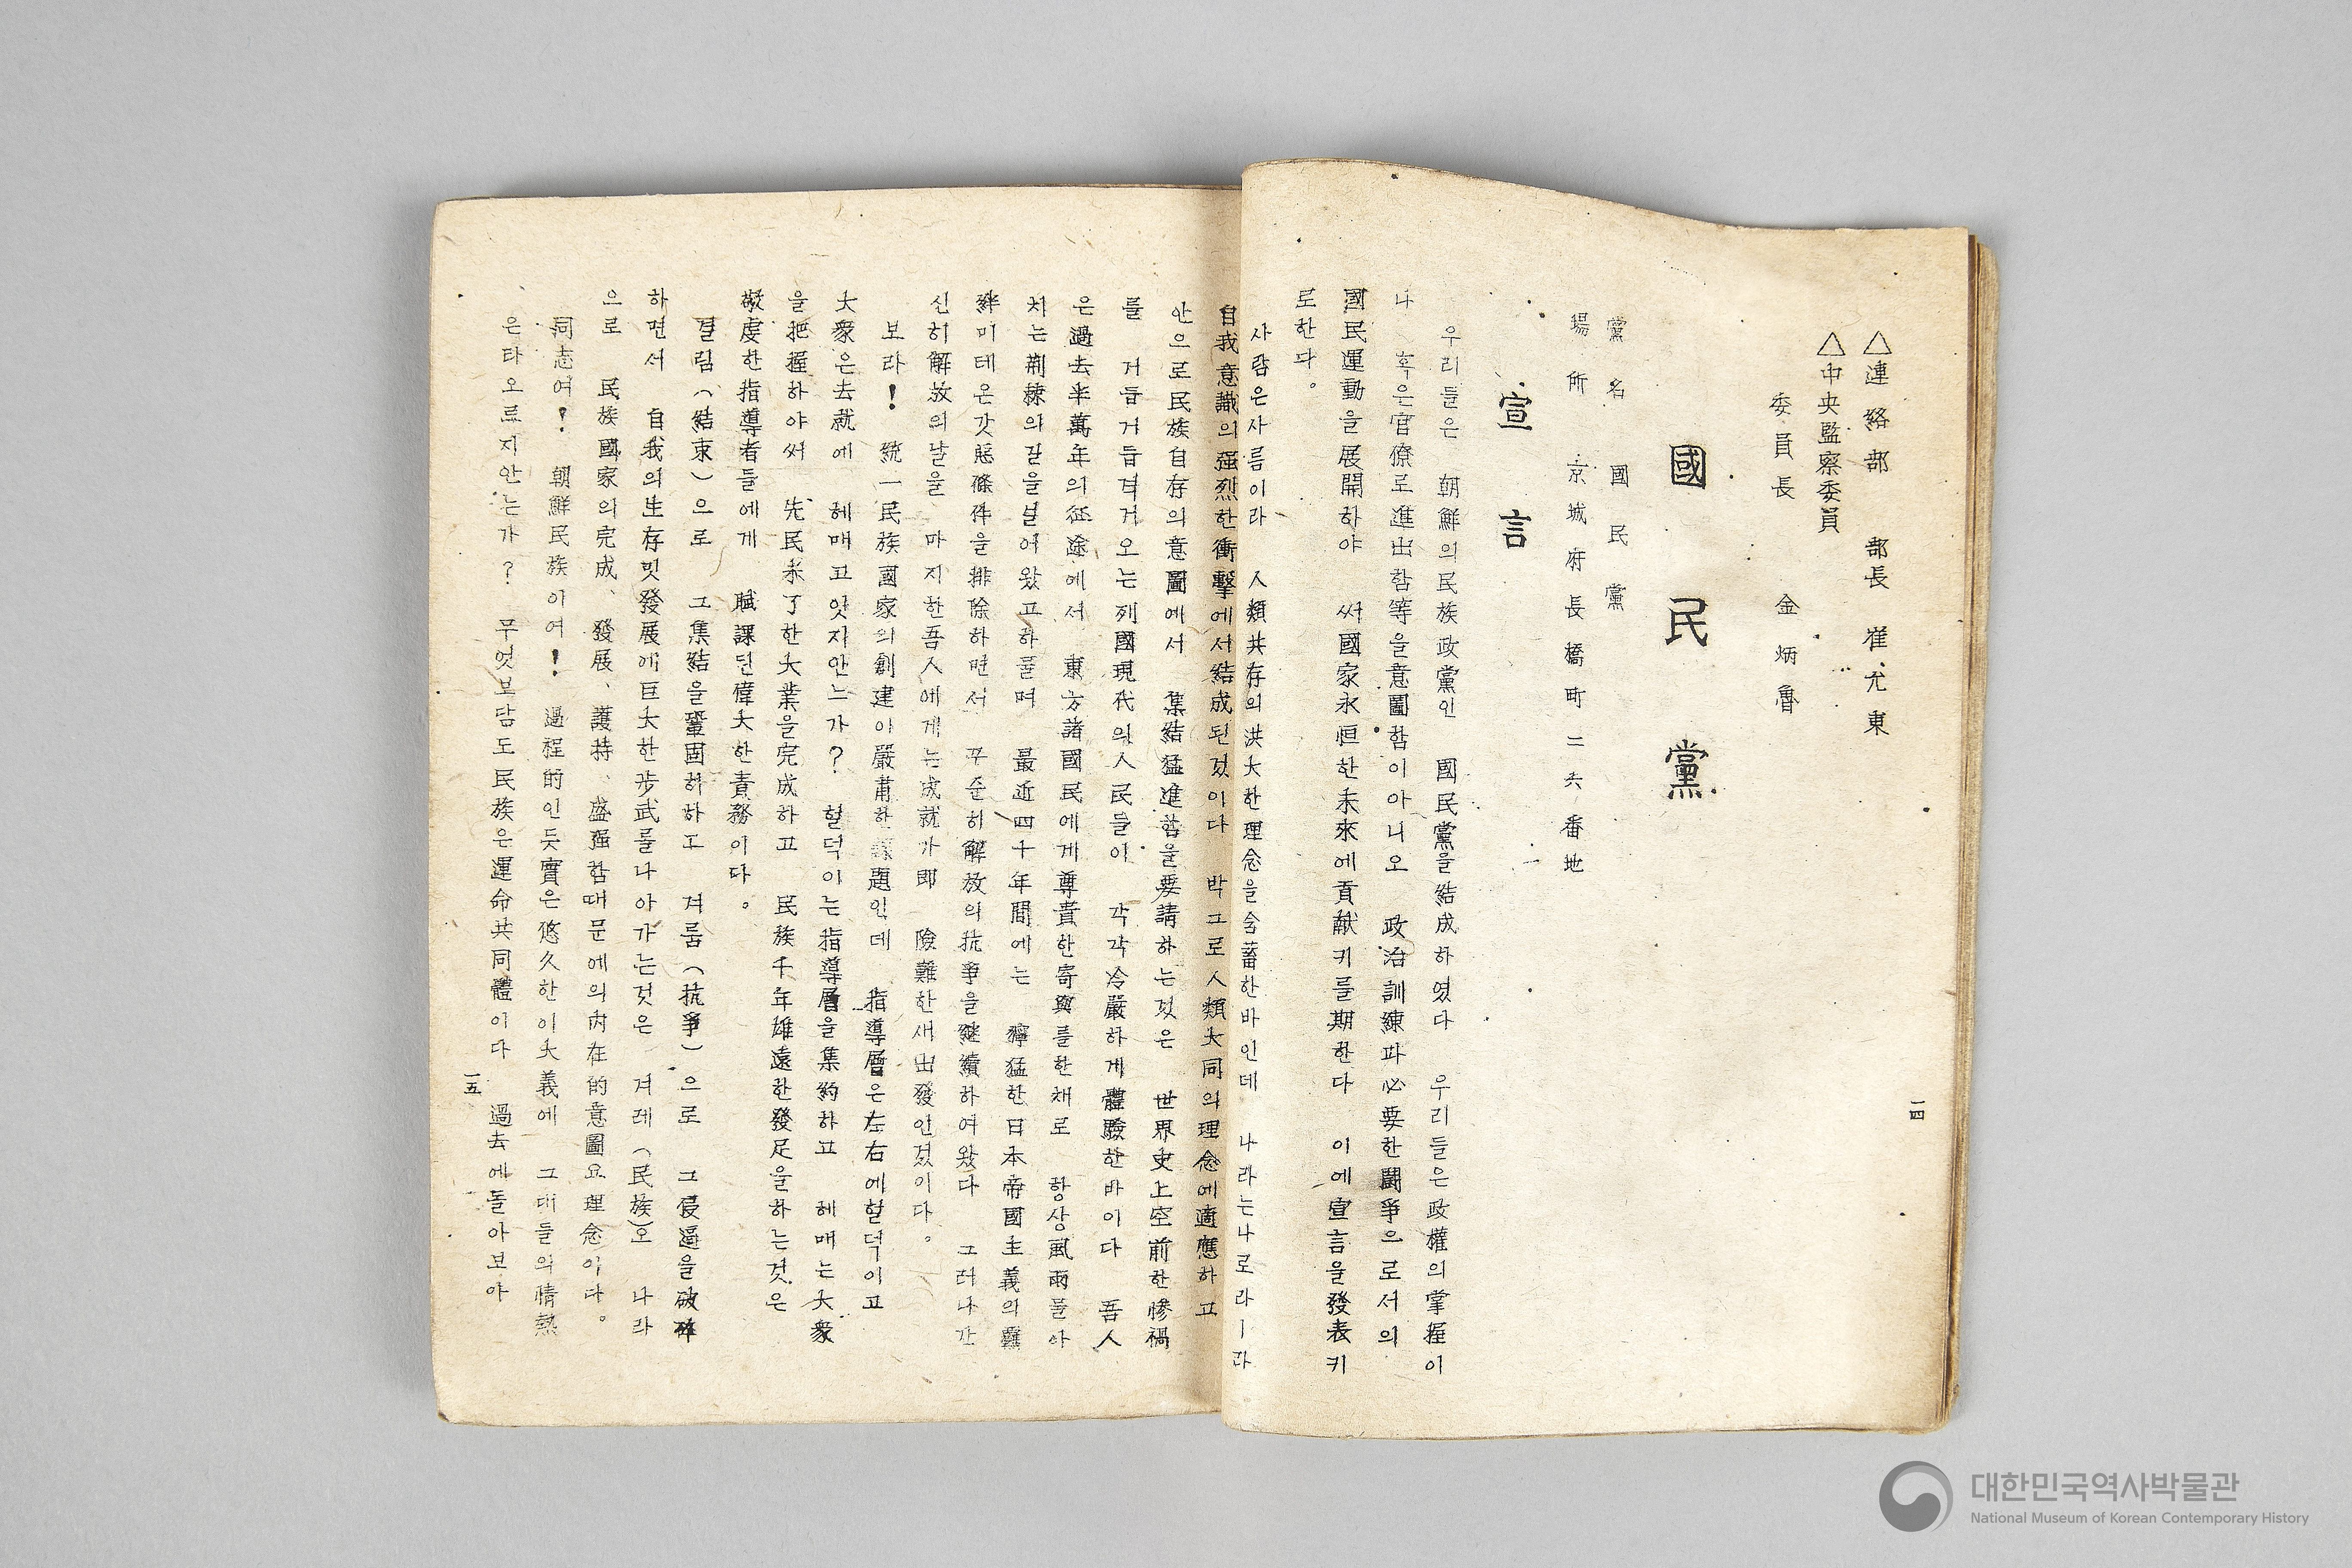 △連絡部 部長 崔允東
△中央監察委員
委員長 金炳魯
國民黨
黨名 國民黨
場所 京城府長橋町二六番地
宣言
우리들은 朝鮮의民族政黨인 國民黨을結成하였다 우리들은政權의掌握이
나 혹은官僚로進出함等을意圖함이아니오 政治訓練과必要한鬪爭으로서의
國民運動을展開하야 써國家永恒한未來에貢献키를期한다 이에宣言을發表키
로한다。
사람은사름이라 人類共存의洪大한理念을含蓄한바인데 나라는나로라ㅣ라
自我意識의强烈한衝擊에서結成된것이다 박그로人類大同의理念에適應하고
안으로民族自存의意圖에서 集結猛進함을要請하는것은 世界史上空前한慘禍
를 거듭거듭격거오는列國現代의人民들이 각각冷嚴하게體驗한바이다 吾人
은過去半萬年의征途에서 東方諸國民에게尊貴한寄與를한채로 항상風雨몰아
치는荆棘의길을넘어왔고하물며 最近四十年間에는 獰猛한日本帝國主義의羈
絆미테온갓惡條件을排除하면서 꾸준히解放의抗爭을継續하여왔다 그러나간
신히解放의날을 마지한吾人에게는成就가即 險難한새出發인것이다。
보라! 統一民族國家의創建이嚴肅한課題인데 指導層은左右에헐덕이고
大衆은去就에 헤매고잇지안느가? 헐덕이는指導層을集約하고 헤매는大衆
을把握하야써 先民未了한大業을完成하고 民族千年雄遠한發足을하는것은
敬虔한指導者들에게 賦課된偉大한責務이다。
결림(結束)으로 그集結을鞏固히하고 겨룸(抗爭)으로 그侵逼을破碎
하면서 自我의生存밋發展에巨大한步武를나아가는것은 겨레(民族)오 나라
으로 民族國家의完成、發展、護持、盛强함때문에의內在的意圖요理念이다。
同志여! 朝鮮民族이여! 過程的인듯實은悠久한이大義에 그대들의情熱
은타오르지안는가? 무엇보담도民族은運命共同體이다 過去에돌아보아
一四
一五
대한민국역사박물관
National Museum of Korean Contemporary History